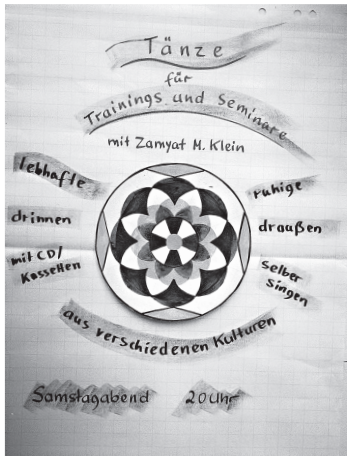 Tänze
für
Trainings und Seminare
mit Zamyat M. Klein
lebhafte
ruhige
drinnen
draußen
mit CD/
Kassetten
selber
singen
aus verschiedenen Kulturen
Samstagabend 20 Uhr